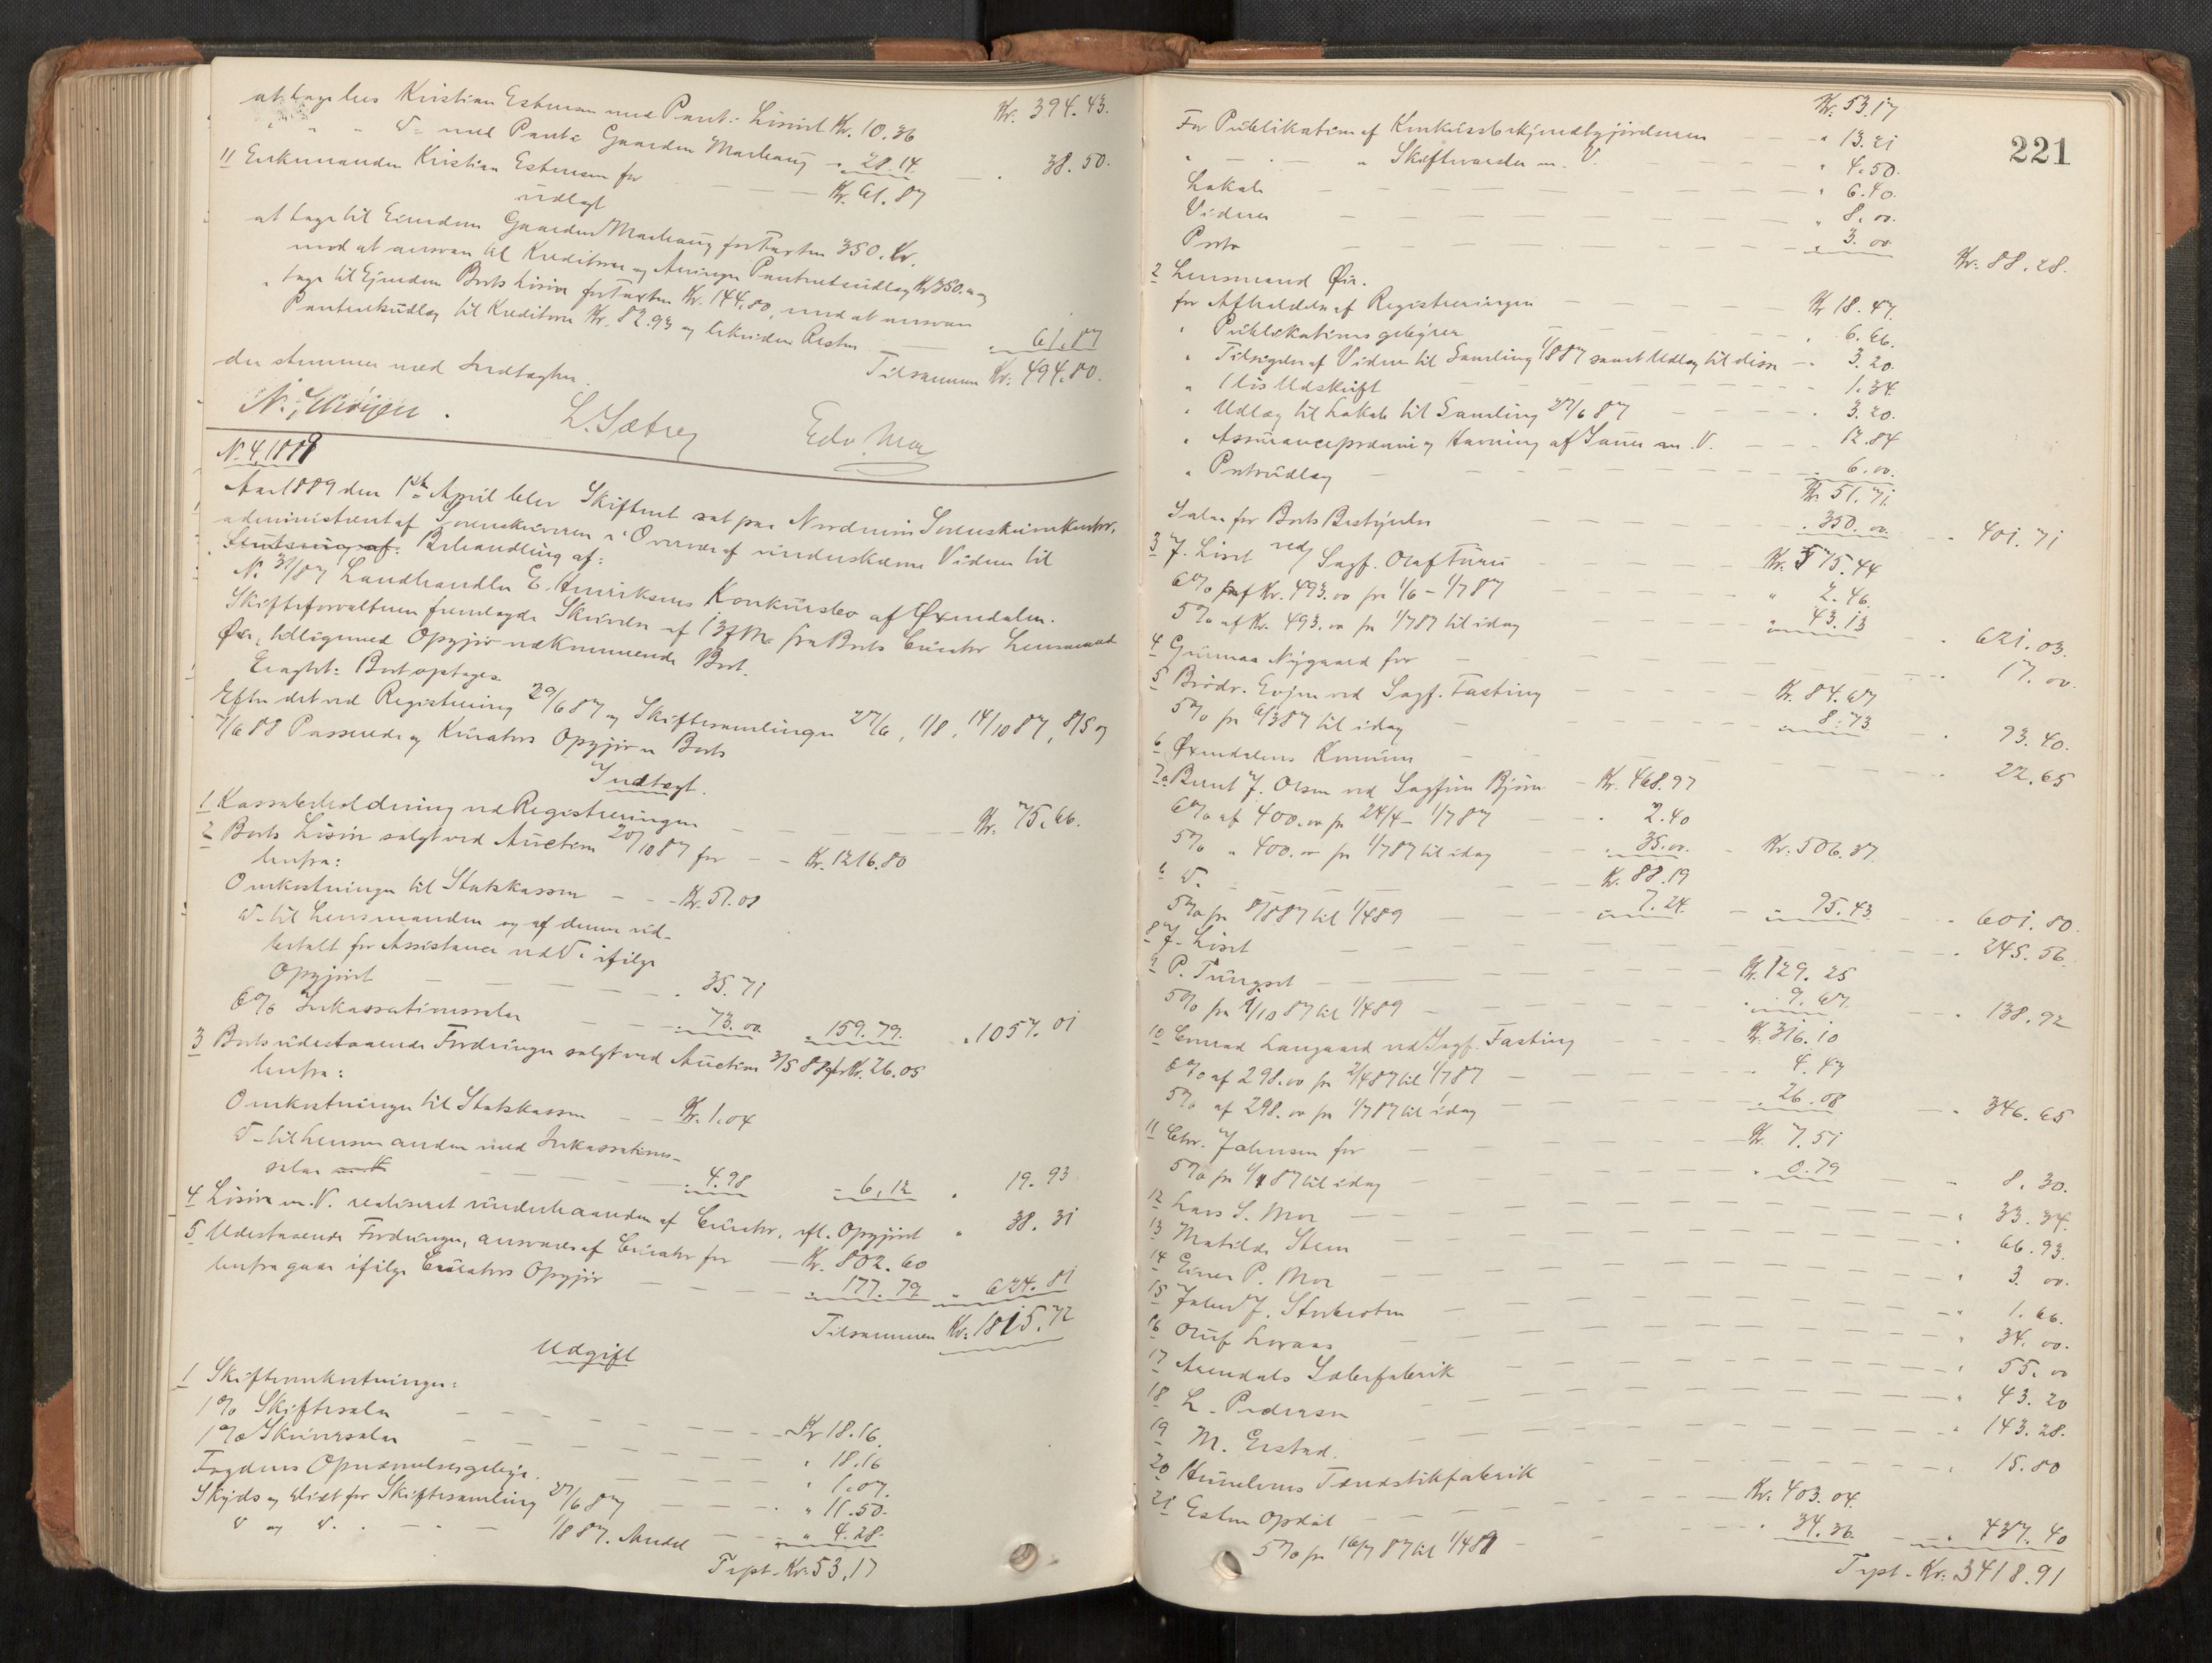 at tage hos Kristian Estensen med Pant i Lösöret Kr. 10.36 Kr. 394.43.
" " " D= med Pant i Gaarden Marhaug " 28.14. " 38.50.
11 Enkemanden Kristian Estensen for Kr. 61.87
udlagt
at tage til Eiendom Gaarden Marhaug for Taxten 350. Kr.
mod at ansvare til Kreditorer og Arvinger Panteretsudlæg Kr 350.00 og
" tage til Ejendom Boets Lösöre for Taxten Kr. 144.80, mod at ansvare
Panteretsudlæg til Kreditorer Kr. 82.93 og beholder Resten " 61.87
Tilsammen Kr. 494.80.
der stemmer med Indtægten.
L. Sætrey Edv. Moe
N. 4, 1889
Aar 1889 den 1ste April blev Skifteret sat paa Nordmör Sorenskriverkontor,
administreret af Sorenskriveren i Overvær af underskrevne Vidner til
Slutning af. Behandling af:
N. 31/87 Landhandler E. Henriksens Konkursbo af Öxendalen.
Skifteforvalteren fremlagde Skrivelse af 13 f M fra Boets Curator Lensmand
Öie, tilligemed Opgjör vedkommende Boet.
Eragtet: Boet optages.
Efter det ved Registrering 29/6 87 og Skiftesamlinger 27/6, 1/8, 14/10 87, 8/5 og
7/6 88 Passerede og Kurators Opgjör er Boets
Indtægt.
1 Kassabeholdning ved Registreringen Kr. 75.66.
2 Boets Lösöre solgt ved Auction 20/10 87 for Kr. 1216.80
herfra:
Omkostninger til Statskassen Kr. 51.08
D= til Lensmanden og af denne ud-
betalt for Assistance ved D= ifölge
Opgjöret " 35.71
6% Inkassationssalær " 73.00 " 159.79. " 1057.01
3 Boets udestaaende Fordringer solgt ved Auction 3/5 88 for Kr. 26.05
herfra:
Omkostninger til Statskassen Kr. 1.04
D= til Lensmanden med Inkassations-
salær " 4.98 " 6.12 " 19.93
4 Lösöre m. V. realiseret underhaanden af Curator, ifl. Opgjöret " 38.31
5 Udestaaende Fordringer, ansvares af Curator for Kr. 802.60
herfra gaar ifölge Curators Opgjör " 177.79 " 624.81
Tilsammen Kr. 1815.72
Udgift
1 Skifteomkostninger:
1% Skiftesalær Kr 18.16.
1% Skriversalær " 18.16
Fogdens Opnævnelsesgebyr. " 1.07.
Skyds og Diæt for Skiftesamling 27/6 87 " 11.50.
D og D. 1/8 87. Andel " 4.28
Trpt. Kr. 53.17
221
Kr. 53.17
For Publikation af Konkursbekjendtgjörelsen " 13.21
" " Skiftevarsler m. V. " 4.50.
Lokale " 6.40.
Vidner " 8.00.
Porto " 3.00 Kr. 88.28.
2 Lensmand Öie.
for Afholdelse af Registreringen Kr 18.47.
" Publikationsgebyrer " 6.66.
" Tilsigelse af Vidner til Samling 1/8 87 samt Udlæg til disse " 3.20.
" 1 Ois Udskrift 1.34.
" Udlæg til Lokale til Samling 27/6 87 " 3.20.
" Assurancepræmie og Havning af Sauer m. V. " 12.84
" Portoudlæg " 6.00.
Kr. 51.71
Salær for Boets Bestyrelse " 350.00. " 401.71
3 J. Liset ved Sagf. Olaf Turi Kr. 575.44
6% af Kr. 493.00 fra 1/6 - 1/7 87 " 2.46
5% af Kr. 493.00 fra 1/7 87 til idag " 43.13 " 621.03.
4 Gunnar Nygaard for " 17.00.
5 Brödr. Evjen ved Sagf. Fasting Kr. 84.67
5% fra 6/3 87 til idag " 8.73 " 93.40.
6 Öxendalens Kommune " 22.65
7a Bernt J. Olsen ved Sagförer Björn Kr. 468.97
6% af 400.00 fra 24/4 - 1/7 87 " 2.40
5% " 400.00 fra 1/7 87 til idag " 35.00. Kr. 506.37.
b D. Kr. 88.19
5% fra 8/8 87 til 1/4 89 " 7.24. " 95.43 " 601.80.
8 J. Liset " 245.56.
9 P. Tungset Kr. 129.25
5% fra 1/10 87 til 1/4 89 " 9.67. " 138.92
10 Conrad Langaard ved Sagf. Fasting Kr. 316.10
6% af 298.00 fra 2/4 87 til 1/7 87 " 4.47
5% af 298.00 fra 1/7 87 til idag " 26.08 " 346.65
11 Chr. Johnsen for Kr. 7.51
5% fra 1/1 87 til idag " 0.79 " 8.30.
12 Lars S. Moe " 33.34.
13 Matilde Stene " 66.93.
14 Einer P. Moe " 3.00.
15 Joleed J. Storhooten " 1.66.
16 Oluf Loraas " 34.00.
17 Arendals Sæbefabrik " 55.00
18 L. Pedersen " 43.20
19 M. Eistad. " 143.28.
20 Humlens Tændstikfabrik " 15.80
21 Esten Opdöl Kr. 403.04.
5% fra 16/7 87 til 1/4 89 " 34.36 " 437.40
Trpt. Kr. 3418.91